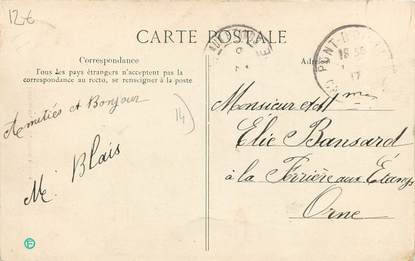 12€
CARTE POSTALE
Correspondance
Tous les pays étrangers n'acceptent pas la
correspondance au recto, se renseigner à la poste
Adresse
Amitiés et Bonjour
M Blais
14
Monsieur et Mme
Elie Bansard
à la Ferrière aux Étangs
Orne